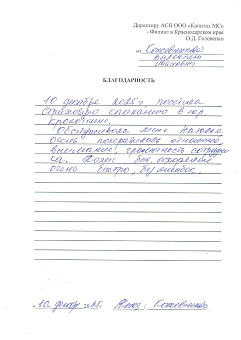 Директору АСП ООО «Капитал МС»
- Филиал в Краснодарском крае
О.Д. Головенко
от Кожевникова
Валентина
Ивановна
БЛАГОДАРНОСТЬ
10 декабря 2025г. посетила
страховую компанию в гор.
Кропоткине.
Обслуживала меня Наталья
очень понравилось отношение,
внимание, грамотность сотрудни
ца.
очень быстро, без ошибок.
"10" декабр 2025г.